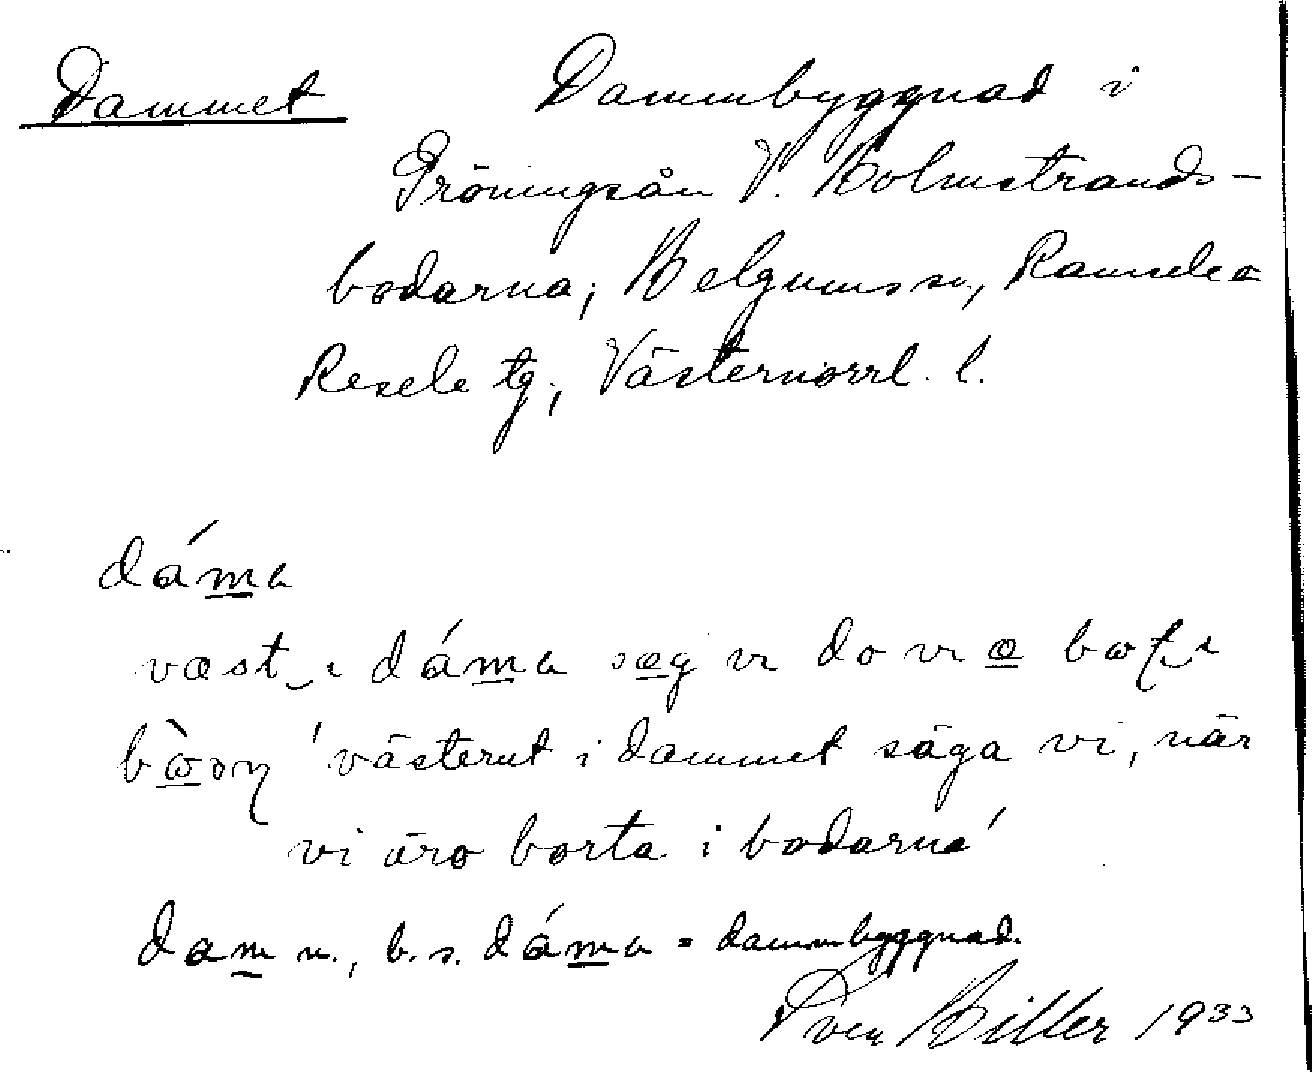 Dammet Dammbyggnad i
Gröningsån V. Holmstrands-
bodarna, Helgums sn, Ramsele o
Resele tg, Västernorrl. l.
dáma
væst i dáma sæg vi do vi æ
'västerut i dammet säga vi, när
vi äro borta i bodarna'
dam n., b. s. dáma = dammbyggnad.
Sven Hiller 1933